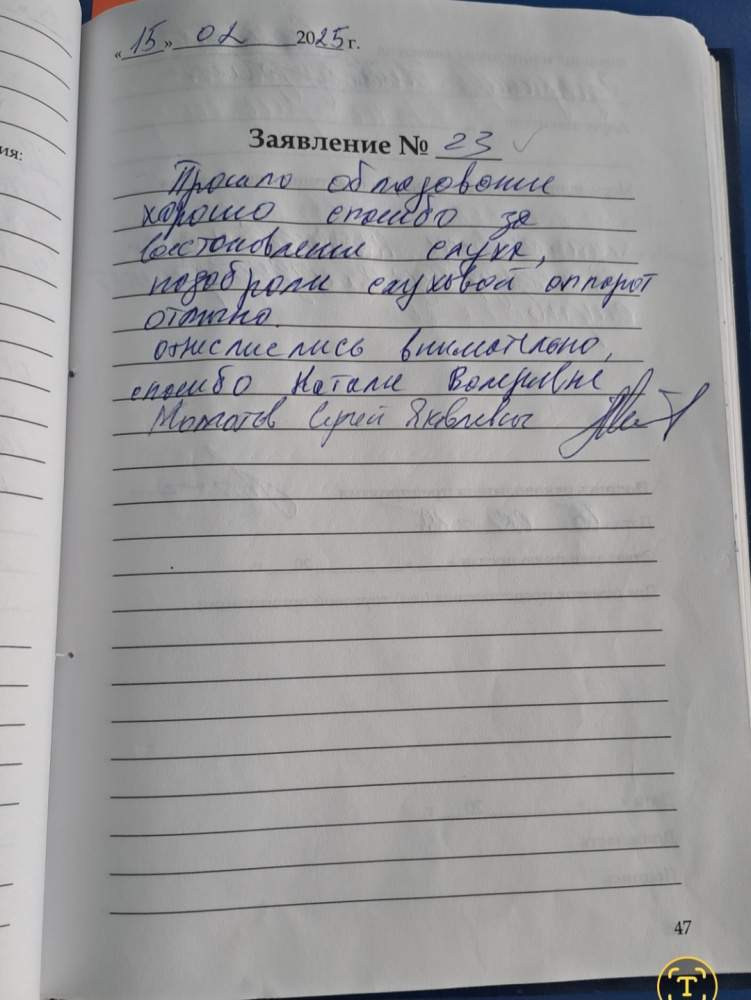 «15» 02 2025 г.
ия:
Заявление № 23
Прошло обследование
хорошо спасибо за
восстоновление слуха,
подоброли слуховой оппорот
отлично.
отнеслиелись внимотельно,
спосибо Натали Волерьевне
Сергей Яковлевич
47
T